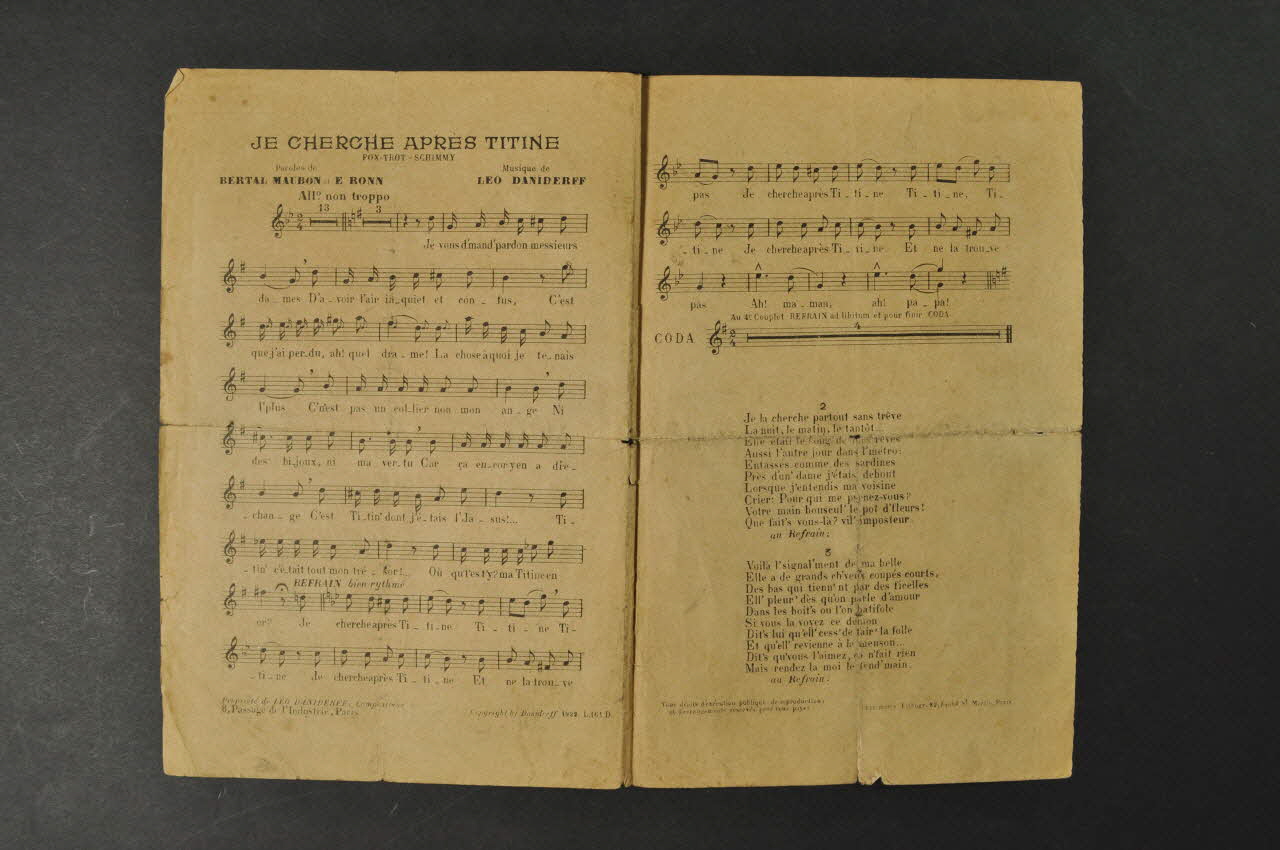 JE CHERCHE APRÈS TITINE
FOX-TROT - SCHIMMY
Paroles de
BERTAL MAUBON et E RONN
Musique de
LEO DANIDERFF
Allº non troppo
13 3
Je vous d'mand'pardon messieurs
da_mes D'a_voir l'air in_quiet et con_fus, C'est
que j'ai per_du, ah! quel dra_me! La chose à quoi je te_nais
l'plus C'n'est pas un col_lier non mon an_ge Ni
des bi_joux, ni ma ver_tu Car ça en_cor y en a d're_
_chan_ge C'est Ti_tin' dont j'é_tais l'Ja_sus!... Ti_
_tin' c'était tout mon tré_sor!... Où qu't'es t'y? ma Titine en
REFRAIN bien rythmé
or? Je cherche après Ti_ti_ne Ti_ti_ne Ti_
_ti_ne Je cherche après Ti_ti_ne Et ne la trou_ve
Propriété de LEO DANIDERFF, Compositeur
8, Passage de l'Industrie, Paris
Copyright by Daniderff 1922 L.161 D.
pas Je cherche après Ti_ti_ne Ti_ti_ne, Ti_
_ti_ne Je cherche après Ti_ti_ne Et ne la trou_ve
pas Ah! ma_man, ah! pa_pa!
Au 4e Couplet REFRAIN ad libitum et pour finir CODA
CODA 4
2
Je la cherche partout sans trêve
La nuit, le matin, le tantôt...
Elle était le song' de mes rêves
Aussi l'autre jour dans l'métro:
Entassés comme des sardines
Près d'un' dame j'étais debout
Lorsque j'entendis ma voisine
Crier: Pour qui me prenez-vous?
Votre main bouscul' le pot d'fleurs!
Que fait's vous-là? vil' imposteur
au Refrain:
3
Voilà l'signal'ment de ma belle
Elle a de grands ch'veux coupés courts,
Des bas qui tienn'nt par des ficelles
Ell' pleur' dès qu'on parle d'amour
Dans les boit's ou l'on batifole
Si vous la voyez ce démon
Dit's lui qu'ell' cess' de fair' la folle
Et qu'ell' revienne à la menson...
Dit's qu'vous l'aimez, ça n'fait rien
Mais rendez la moi le lend'main.
au Refrain.
Tous droits d'exécution publique de reproduction
et d'arrangements réservés pour tous pays